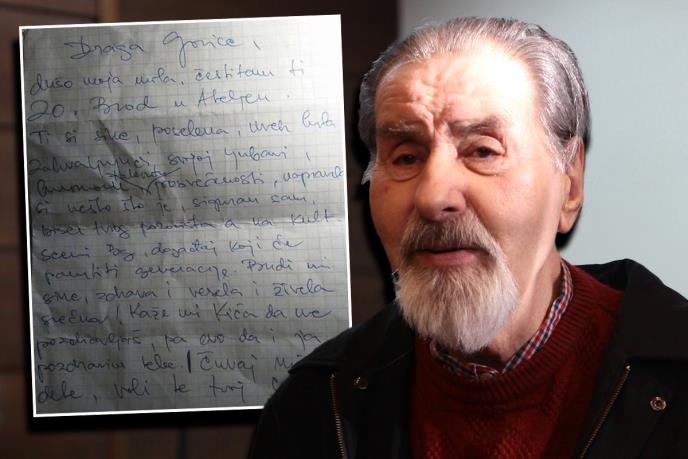 Draga Gorice,
dušo moja mila, čestitam ti
20. Brod u Ateljeu.
Ti si sine, posebna, uvek bila
zahvaljujući svojoj ljubavi,
posvećenosti, napravila
si nešto što je, siguran sam,
tvog pozorišta a na kult
sceni Bg, događaj koji će
pamtiti generacije. Budi mi
sine, zdrava i vesela i živela
srećna! Kaže mi Kića da me
pozdravljaš, pa evo da i ja
pozdravim tebe. Čuvaj mi
voli te tvoj